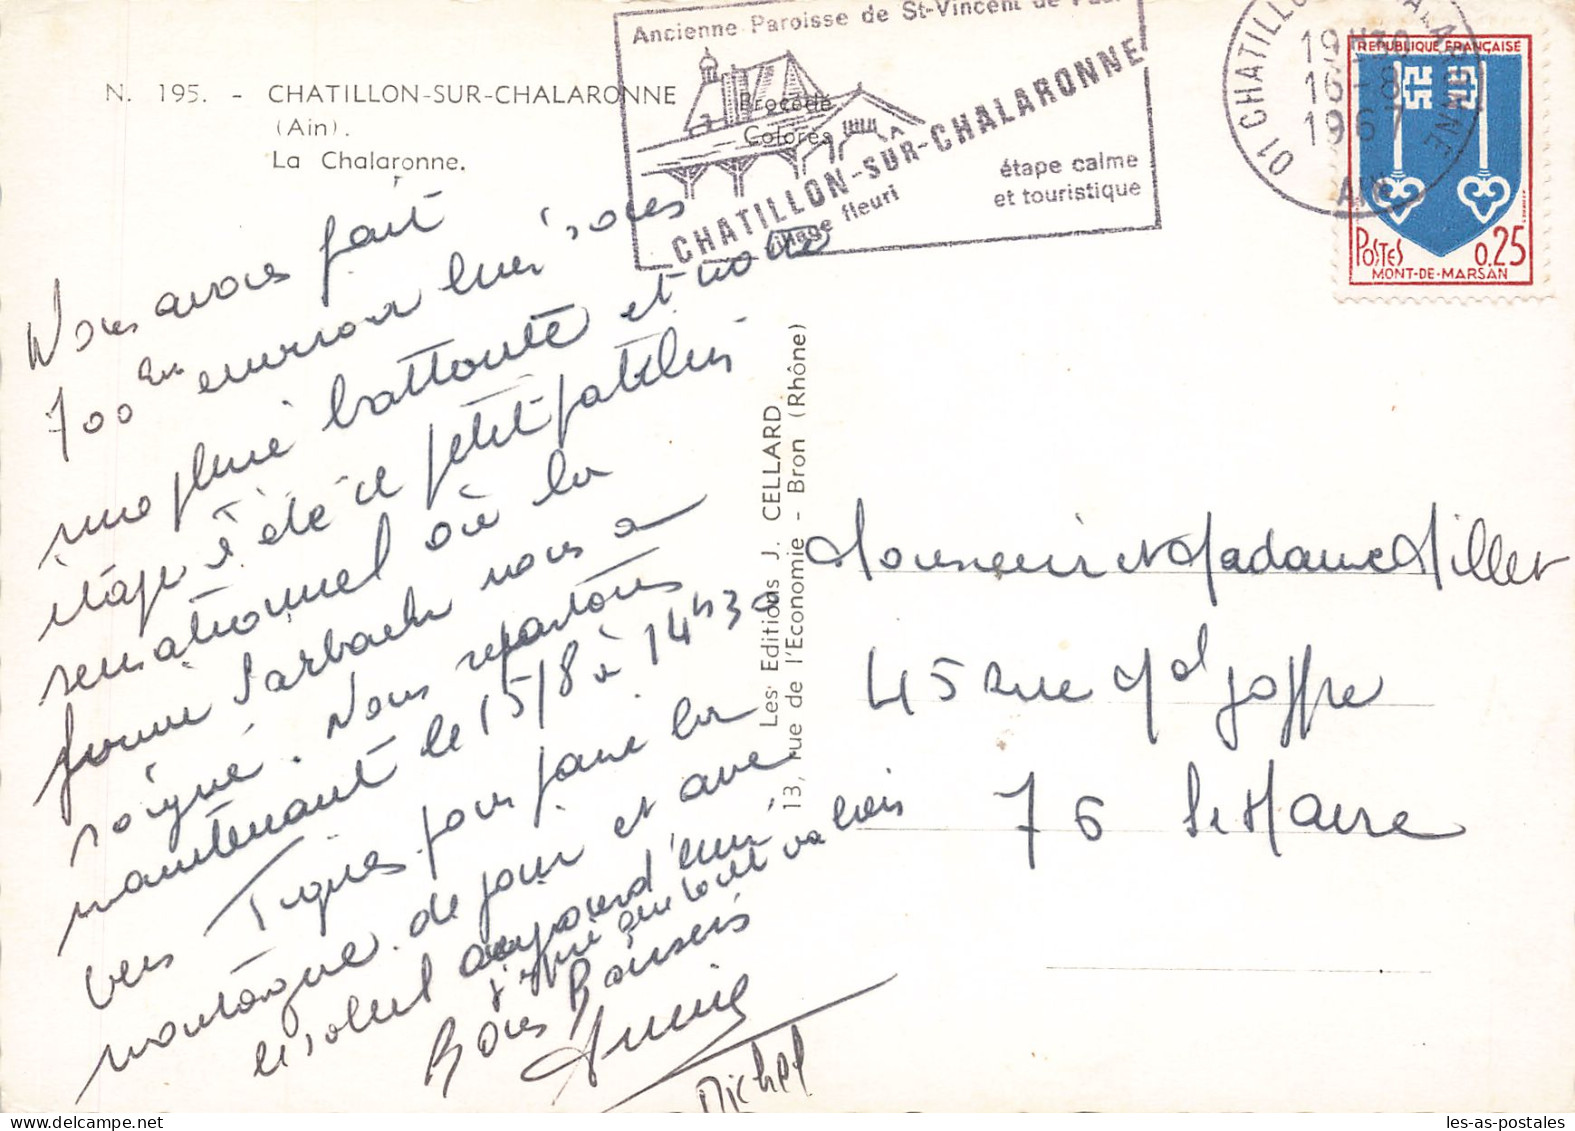 N. 195. - CHATILLON-SUR-CHALARONNE
(Ain).
La Chalaronne.
Procédé
Colorès
Ancienne Paroisse de St-Vincent de Paul
CHATILLON-SUR-CHALARONNE
village fleuri
étape calme
et touristique
01 CHATILLON CHALARONNE
19H30
16-8
1967
AIN
REPUBLIQUE FRANÇAISE
POSTES 0,25
MONT-DE-MARSAN
Nous avons fait
700 km environ hier sous
une pluie battante et notre
étape a été ce petit patelin
sensationnel où la
femme nous a
soigné. Nous repartons
maintenant le 15/8 à 14h30
vers Tignes pour faire la
montagne de jour et avec
le soleil aujourd'hui
qui tout va bien
Bons Baisers
Annie
Michel
Les Editions J. CELLARD
13, rue de l'Economie - Bron (Rhône)
Monsieur et Madame Millet
45 rue Mal Joffre
76 Le Havre
les-as-postales.com